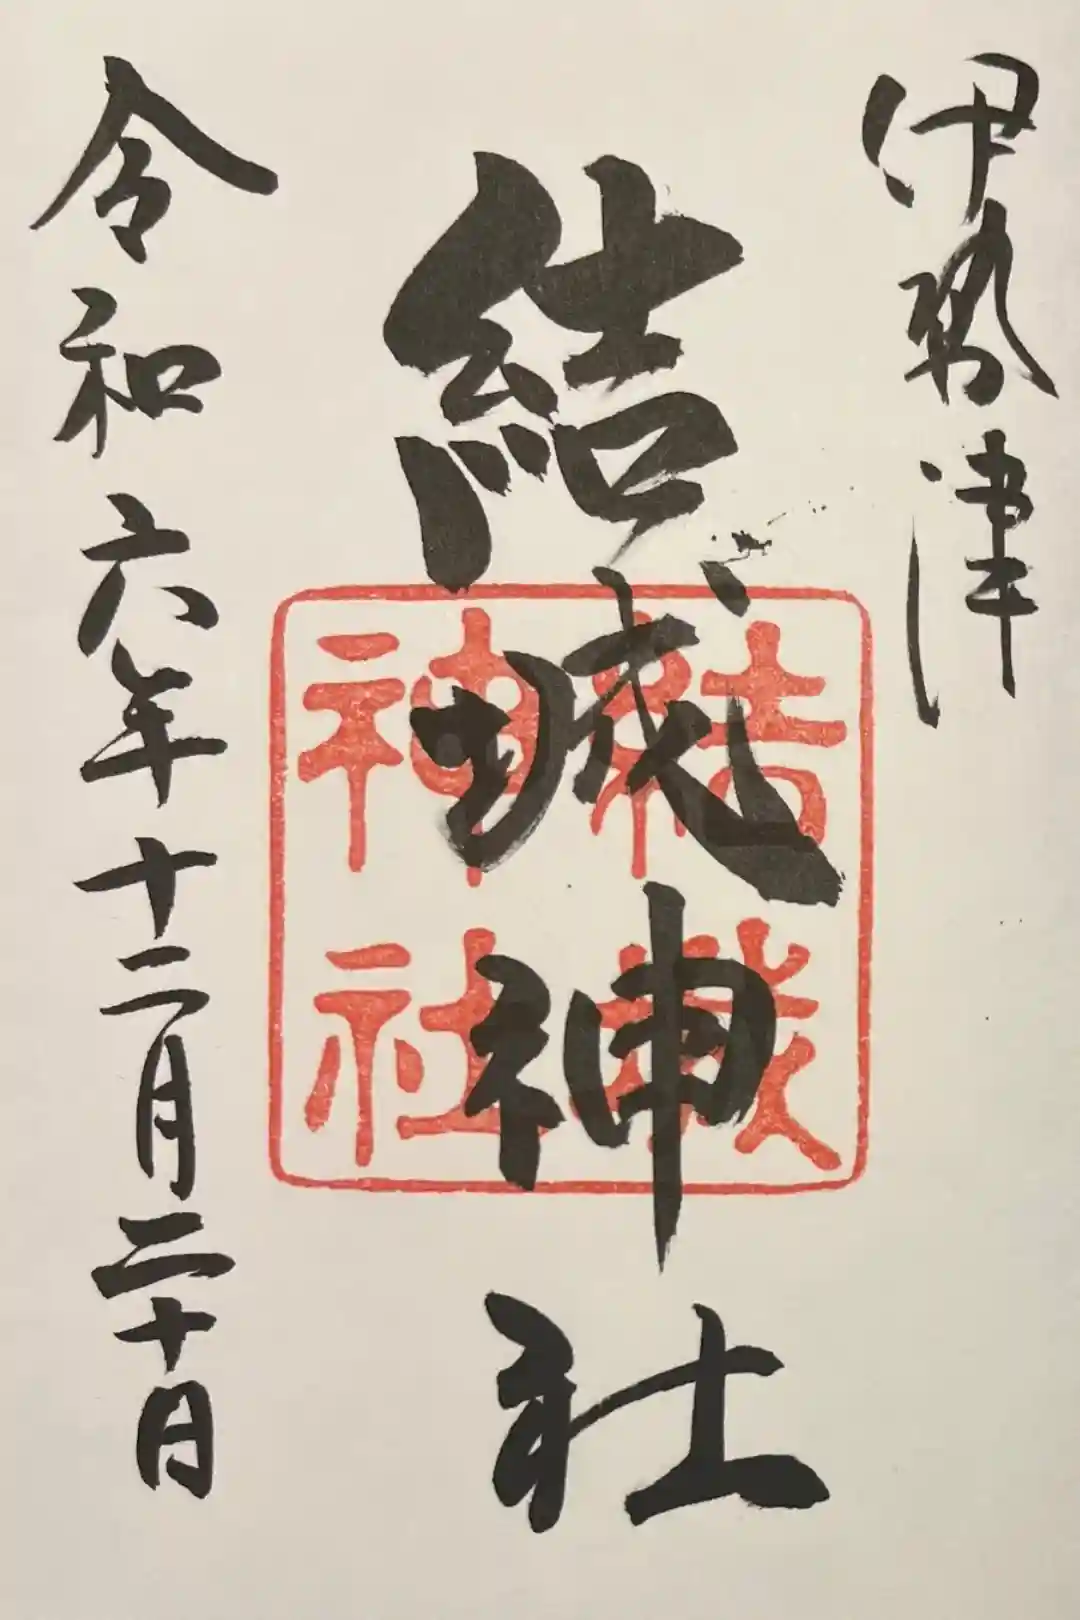 伊勢津
結城神社
結城神社
令和六年十二月二十日